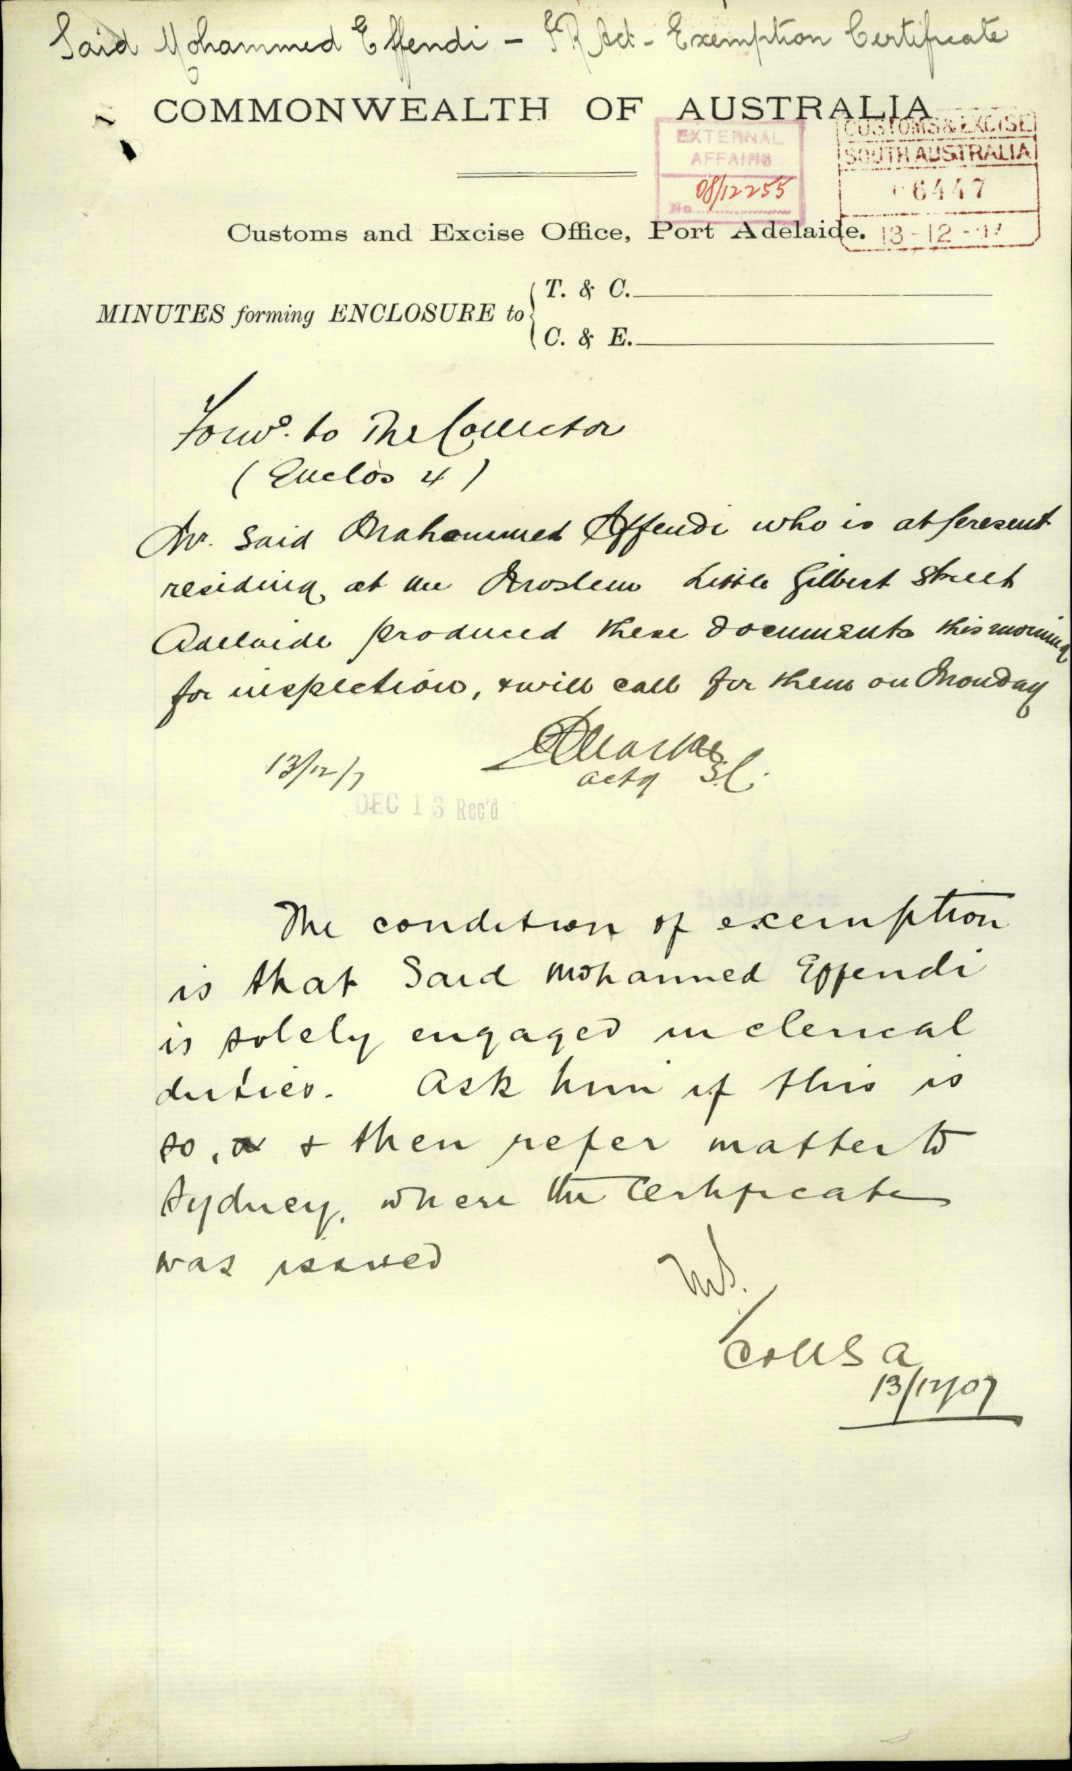 Said Mohammed Effendi - I R Act - Exemption Certificate
COMMONWEALTH OF AUSTRALIA
EXTERNAL
AFFAIRS
08/12255
No
CUSTOMS & EXCISE
SOUTH AUSTRALIA
6447
13-12-07
Customs and Excise Office, Port Adelaide.
MINUTES forming ENCLOSURE to
T. & C.
C. & E.
Forwd. to The Collector
(Enclos 4)
Mr. Said Mahommed Effendi who is at present
residing at the Moslem Little Gilbert Street
Adelaide produced these documents this morning
for inspection, & will call for them on Monday
actg S.C.
13/12/7
DEC 13 Rec'd
The condition of exemption
is that Said Mohammed Effendi
is solely engaged in clerical
duties. Ask him if this is
so, & then refer matter to
Sydney, where the Certificate
was issued
Coll S A
13/12/07